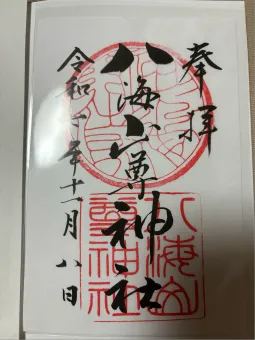 奉拝
八海山尊神社
令和 年十一月八日
八海山
尊神社